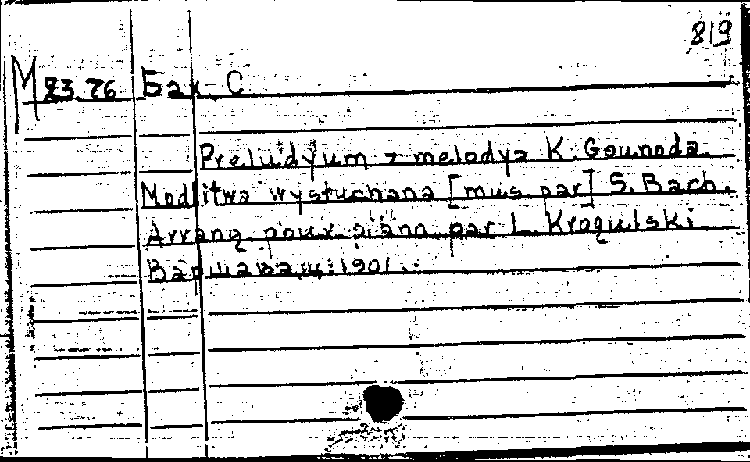 819
M 23.76 Бах С
Preludyum z melodyą K. Gounoda.
Modlitwa wysłuchana [mus par] S. Bach.
Arrang pour piano par L Krogulski
Варшава, 1901.